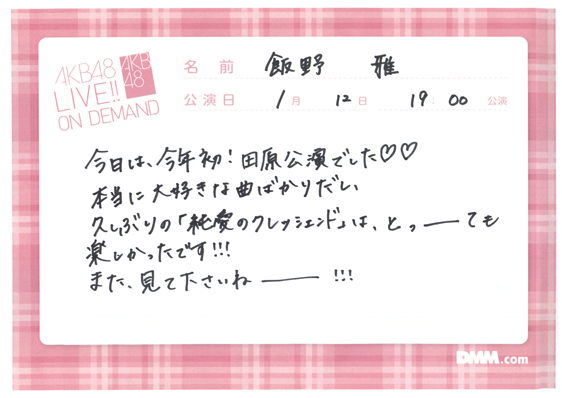 AKB48
LIVE!!
ON DEMAND
AKB
48
名 前 飯野 雅
公演日 1月 12日 19:00 公演
今日は、今年初!田原公演でした♡♡
本当に大好きな曲ばかりだし
久しぶりの「純愛のクレッシェンド」は、とっーーても
楽しかったです!!!
また、見て下さいねーーー!!!
DMM.com